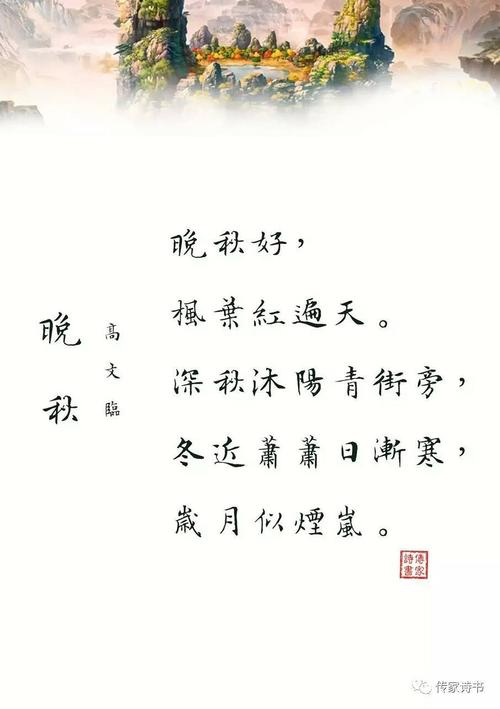 晚秋
高文臨
晚秋好，
楓葉紅遍天。
深秋沐陽青街旁，
冬近蕭蕭日漸寒，
歲月似煙嵐。
傳家
詩書
传家诗书